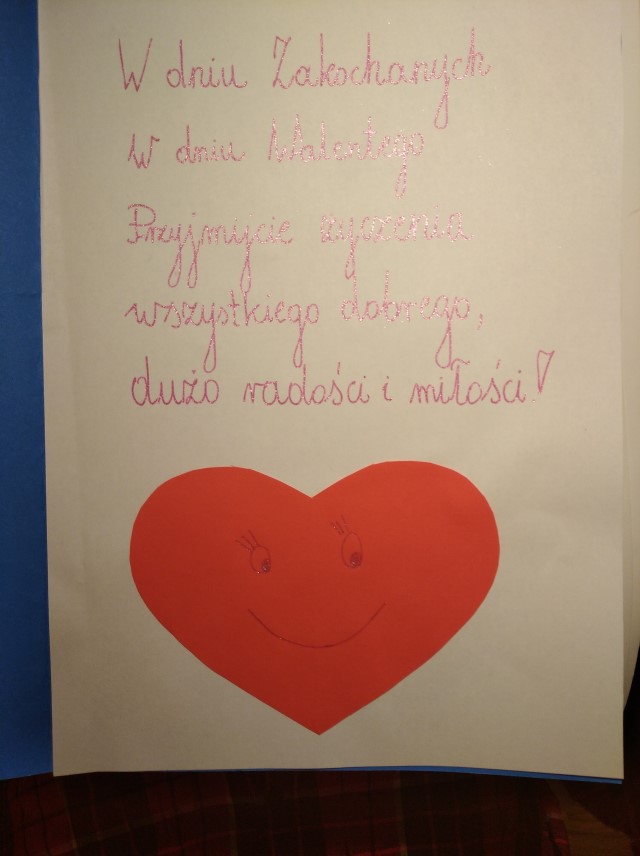 W dniu Zakochanych
w dniu Walentego
Przyjmijcie życzenia
wszystkiego dobrego,
dużo radości i miłości!